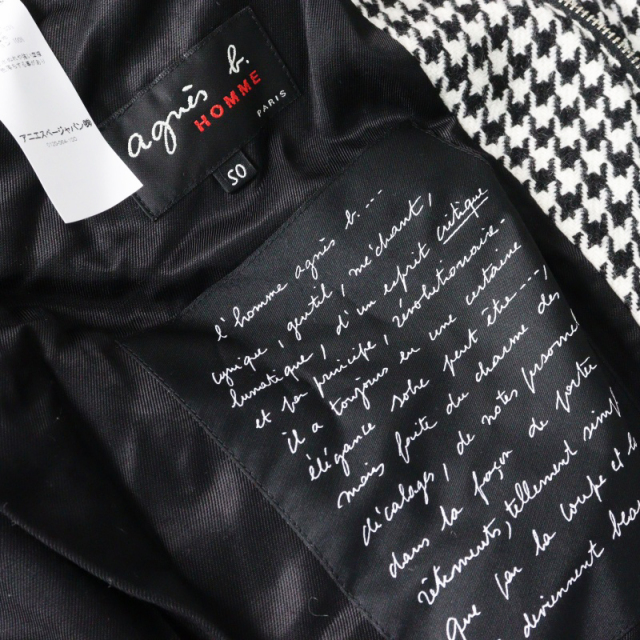 アニエスベージャパン㈱
agnès b.
HOMME
PARIS
50
l'homme agnès b. ---
cynique, gentil, méchant,
lunatique, d'un esprit critique
et par principe, révolutionnaire.
il a toujours eu une certaine
élégance sobre peut être ---,
mais faite du charme des
décalages, de notes personnel
dans la façon de porter
vêtements, tellement simpl
que par la coupe et
deviennent beau